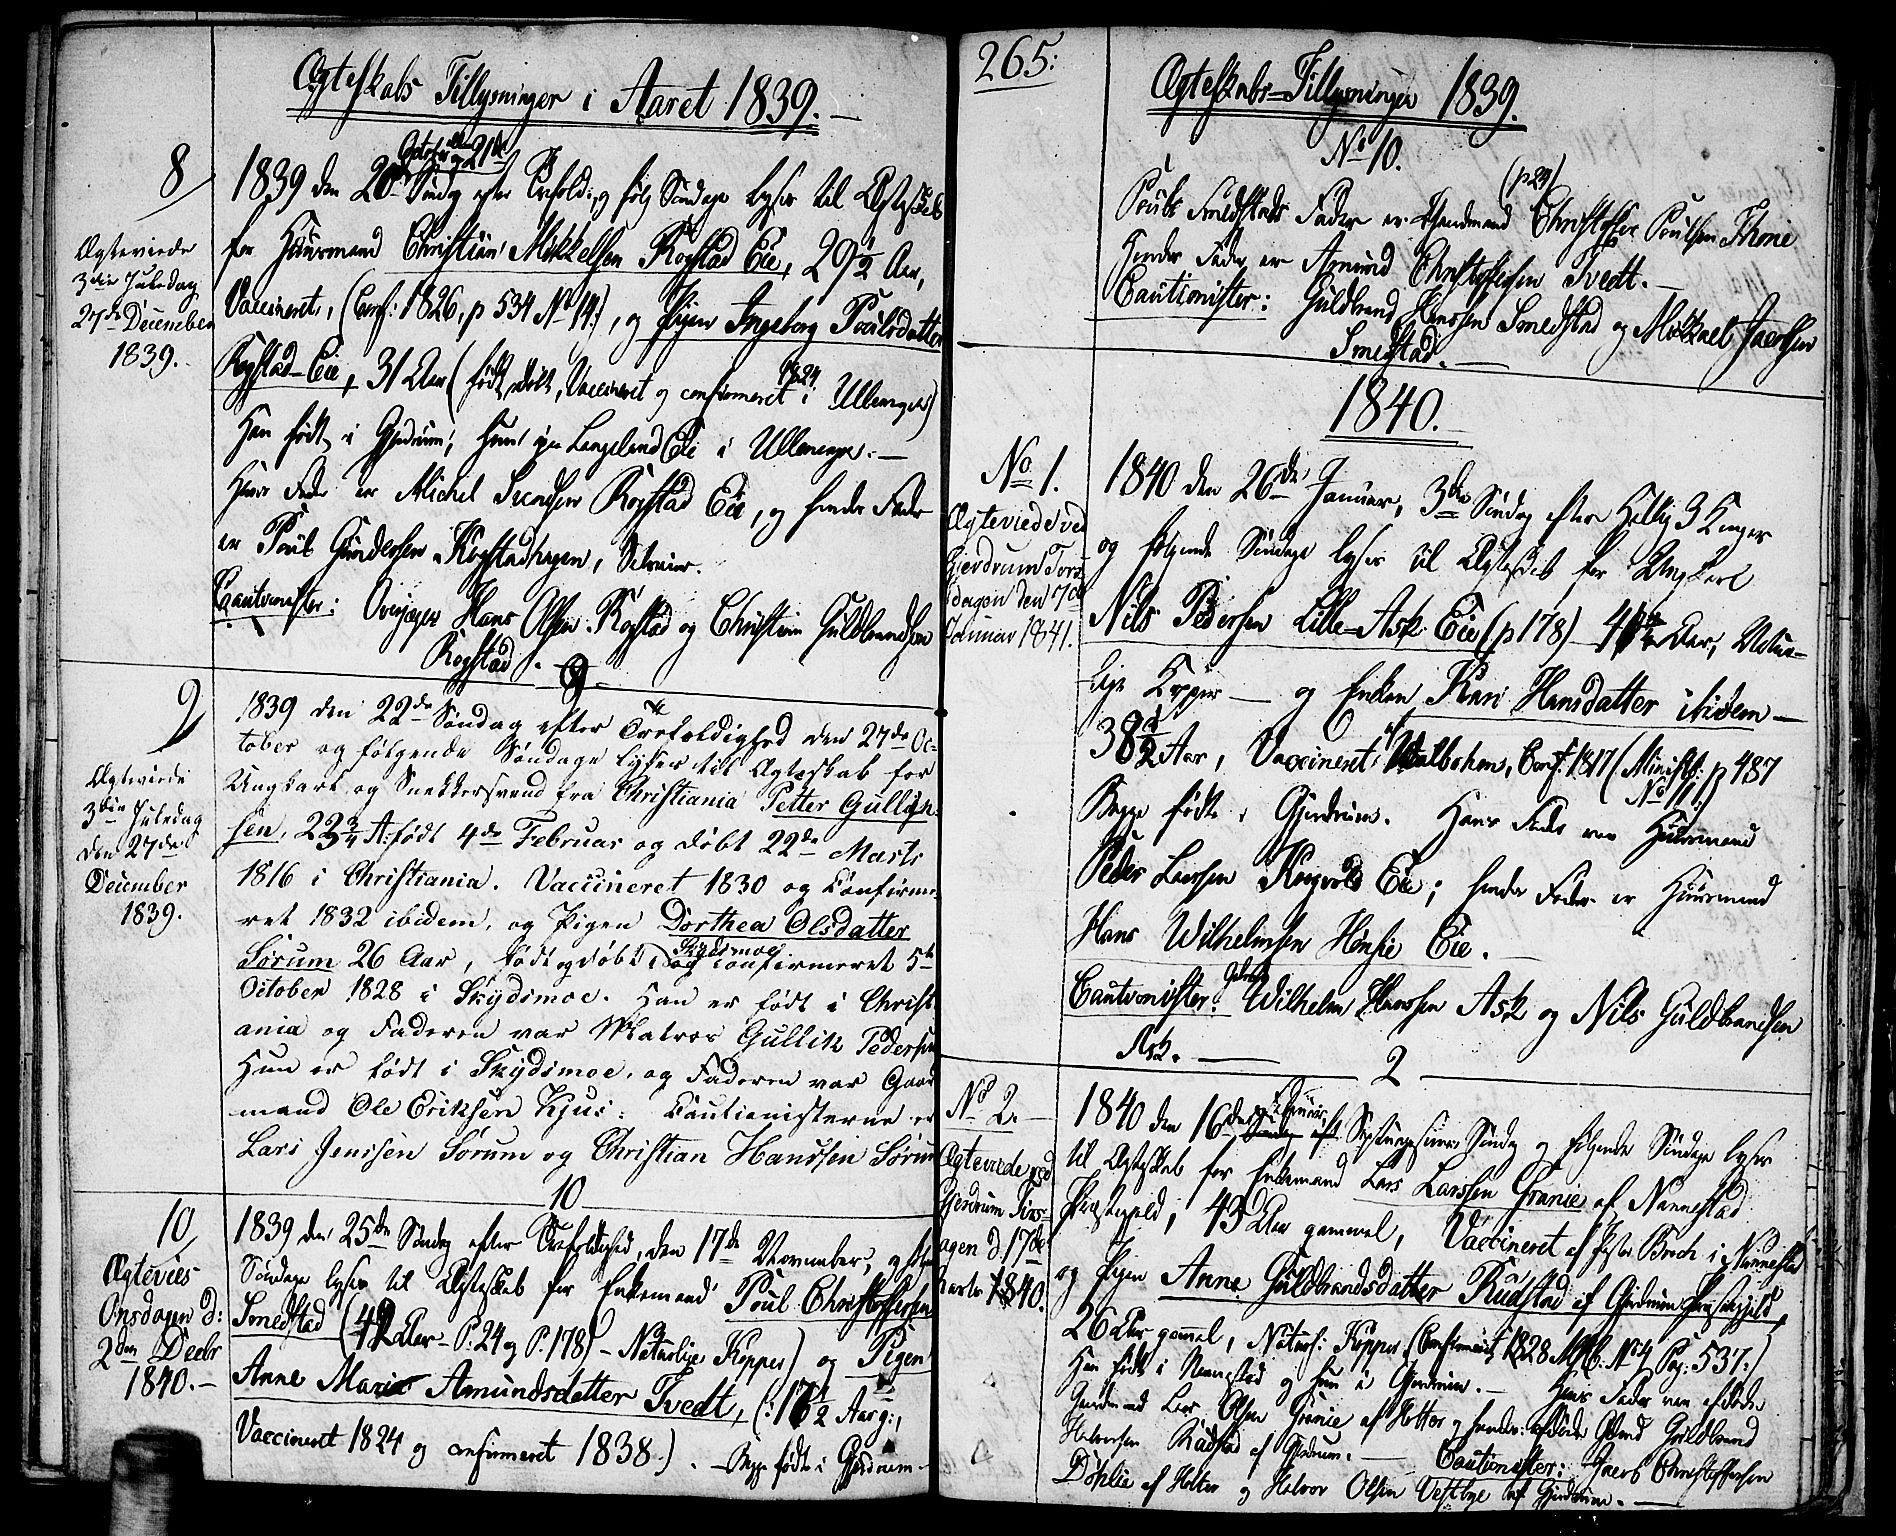 Ægteskabs Tillysninger i Aaret 1839.
8
Ægteviede
3die Juledag
27de December
1839.
October 21de
1839 den 20de Søndag efter Trefold: og følg Søndage lyses til Ægteskab
for Huusmand Christian Mikkelsen Rogstad Eie, 29½ Aar,
Vaccineret, (Conf: 1826, p 534 No 14:), og Pigen Ingeborg Poulsdatter
Rogstad-Eie, 31 Aar (født, døbt, Vaccineret og confirmeret 1824 i Ullensager)
Han født i Gjerdrum, Hun paa Langeland Eie i Ullensager. —
Hans Fader er Michel Svendsen Rogstad Eie, og hendes Fader
er Poul Gundersen Rogstadhagen,
Cautionister: Hans Olsen Rogstad og Christian Guldbrandsen
Rogstad. —
9
9
Ægteviede
3die Juledag
den 27de
December
1839.
1839 den 22de Søndag efter Trefoldighed den 27de Oc-
tober og følgende Søndage lyses til Ægteskab for
Ungkarl og Snekkersvend fra Christiania Petter Gullich-
sen, 22¾ A: født 4de Februar og døbt 22de Marts
1816 i Christiania. Vaccineret 1830 og Confirme-
ret 1832 ibidem, og Pigen Dorthea Olsdatter
Sørum 26 Aar, født og døbt i Skydsmoe og confirmeret 5te
October 1828 i Skydsmoe. Han er født i Christi
ania og Faderen var Matros Gullik Pedersen
Hun er født i Skydsmoe, og Faderen var Gaard
mand Ole Eriksen Kjus: Cautionisterne er
Lars Jenssen Sørum og Christian Hanssen Sørum
10
10
Ægtevies
Onsdagen d:
2den Decbr
1840. —
1839 den 25de Søndag efter Trefoldighed, den 17de November, og følgende
Søndage lyses til Ægteskab for Enkemand Poul Christoffersen
Smedstad (42 Aar – P. 24 og P. 178) – Naturlige Kopper) og Pigen
Anne Marie Amundsdatter Tvedt, (: 17½ Aar g:,
Vaccineret 1824 og confirmeret 1838.). — Begge født i Gjerdrum —
265:
Ægteskabs-Tillysninger 1839.
No 10.
(p 24)
Pouls Smedstads Fader er Huusmand Christoffer Poulsen Thoni
Hendes Fader er Amund Christoffersen Tvedt. —
Cautionister: Guldbrand Hanssen Smedstad og Mikkael
Smedstad. —
1840.
No 1.
Ægteviede ved
Gjerdrum Tors-
dagen den 7de
Januar 1841.
1840 den 26de Januar, 3die Søndag efter Hellig 3 Konger
og følgende Søndage lyses til Ægteskab for Ungkarl
Nils Pedersen Lille-Ask Eie (p 178) – Aar, Natur-
lige Kopper — og Enken Kari Hansdatter ibidem —
38½ Aar, Vaccineret, Conf: 1817 (Ministb: p 487
No 11:)
Begge fødte i Gjerdrum. Hans Fader var Huusmand
Peder Larsen Eie; hendes Fader er Huusmand
Hans Wilhelmsen Hønsie Eie. —
Cautionister: Wilhelm Hanssen Ask og Nils Guldbrandsen
Ask. —
2
No 2. —
Ægteviede ved
Gjerdrum Tirs-
dagen d. 17de
Marts 1840.
1840 den 16de Februar Septuagesima Søndag og følgende Søndage lyses
til Ægteskab for Enkemand Lars Larssen Granie af Nannestad
Præstegjeld, 43 Aar gammel, Vaccineret af Brock i Nannestad
og Pigen Anne Guldbrandsdatter Rudstad af Gjerdrum Præstegjeld,
26 Aar gammel, Naturl: Kopper (Confirmeret 1828 Mb: No 4 Pag: 537:)
Han født i Nannestad og hun i Gjerdrum. — Hans Fader var afdøde
Gaardmand Lars Olsen Granie af Holter og hendes: afdøde Gmd Guldbrand
Halvorsen Rudstad af Gjerdrum. — Cautionister: Christoffersen
Døhlie af Holter og Halvor Olsen Vestbye af Gjerdrum. —